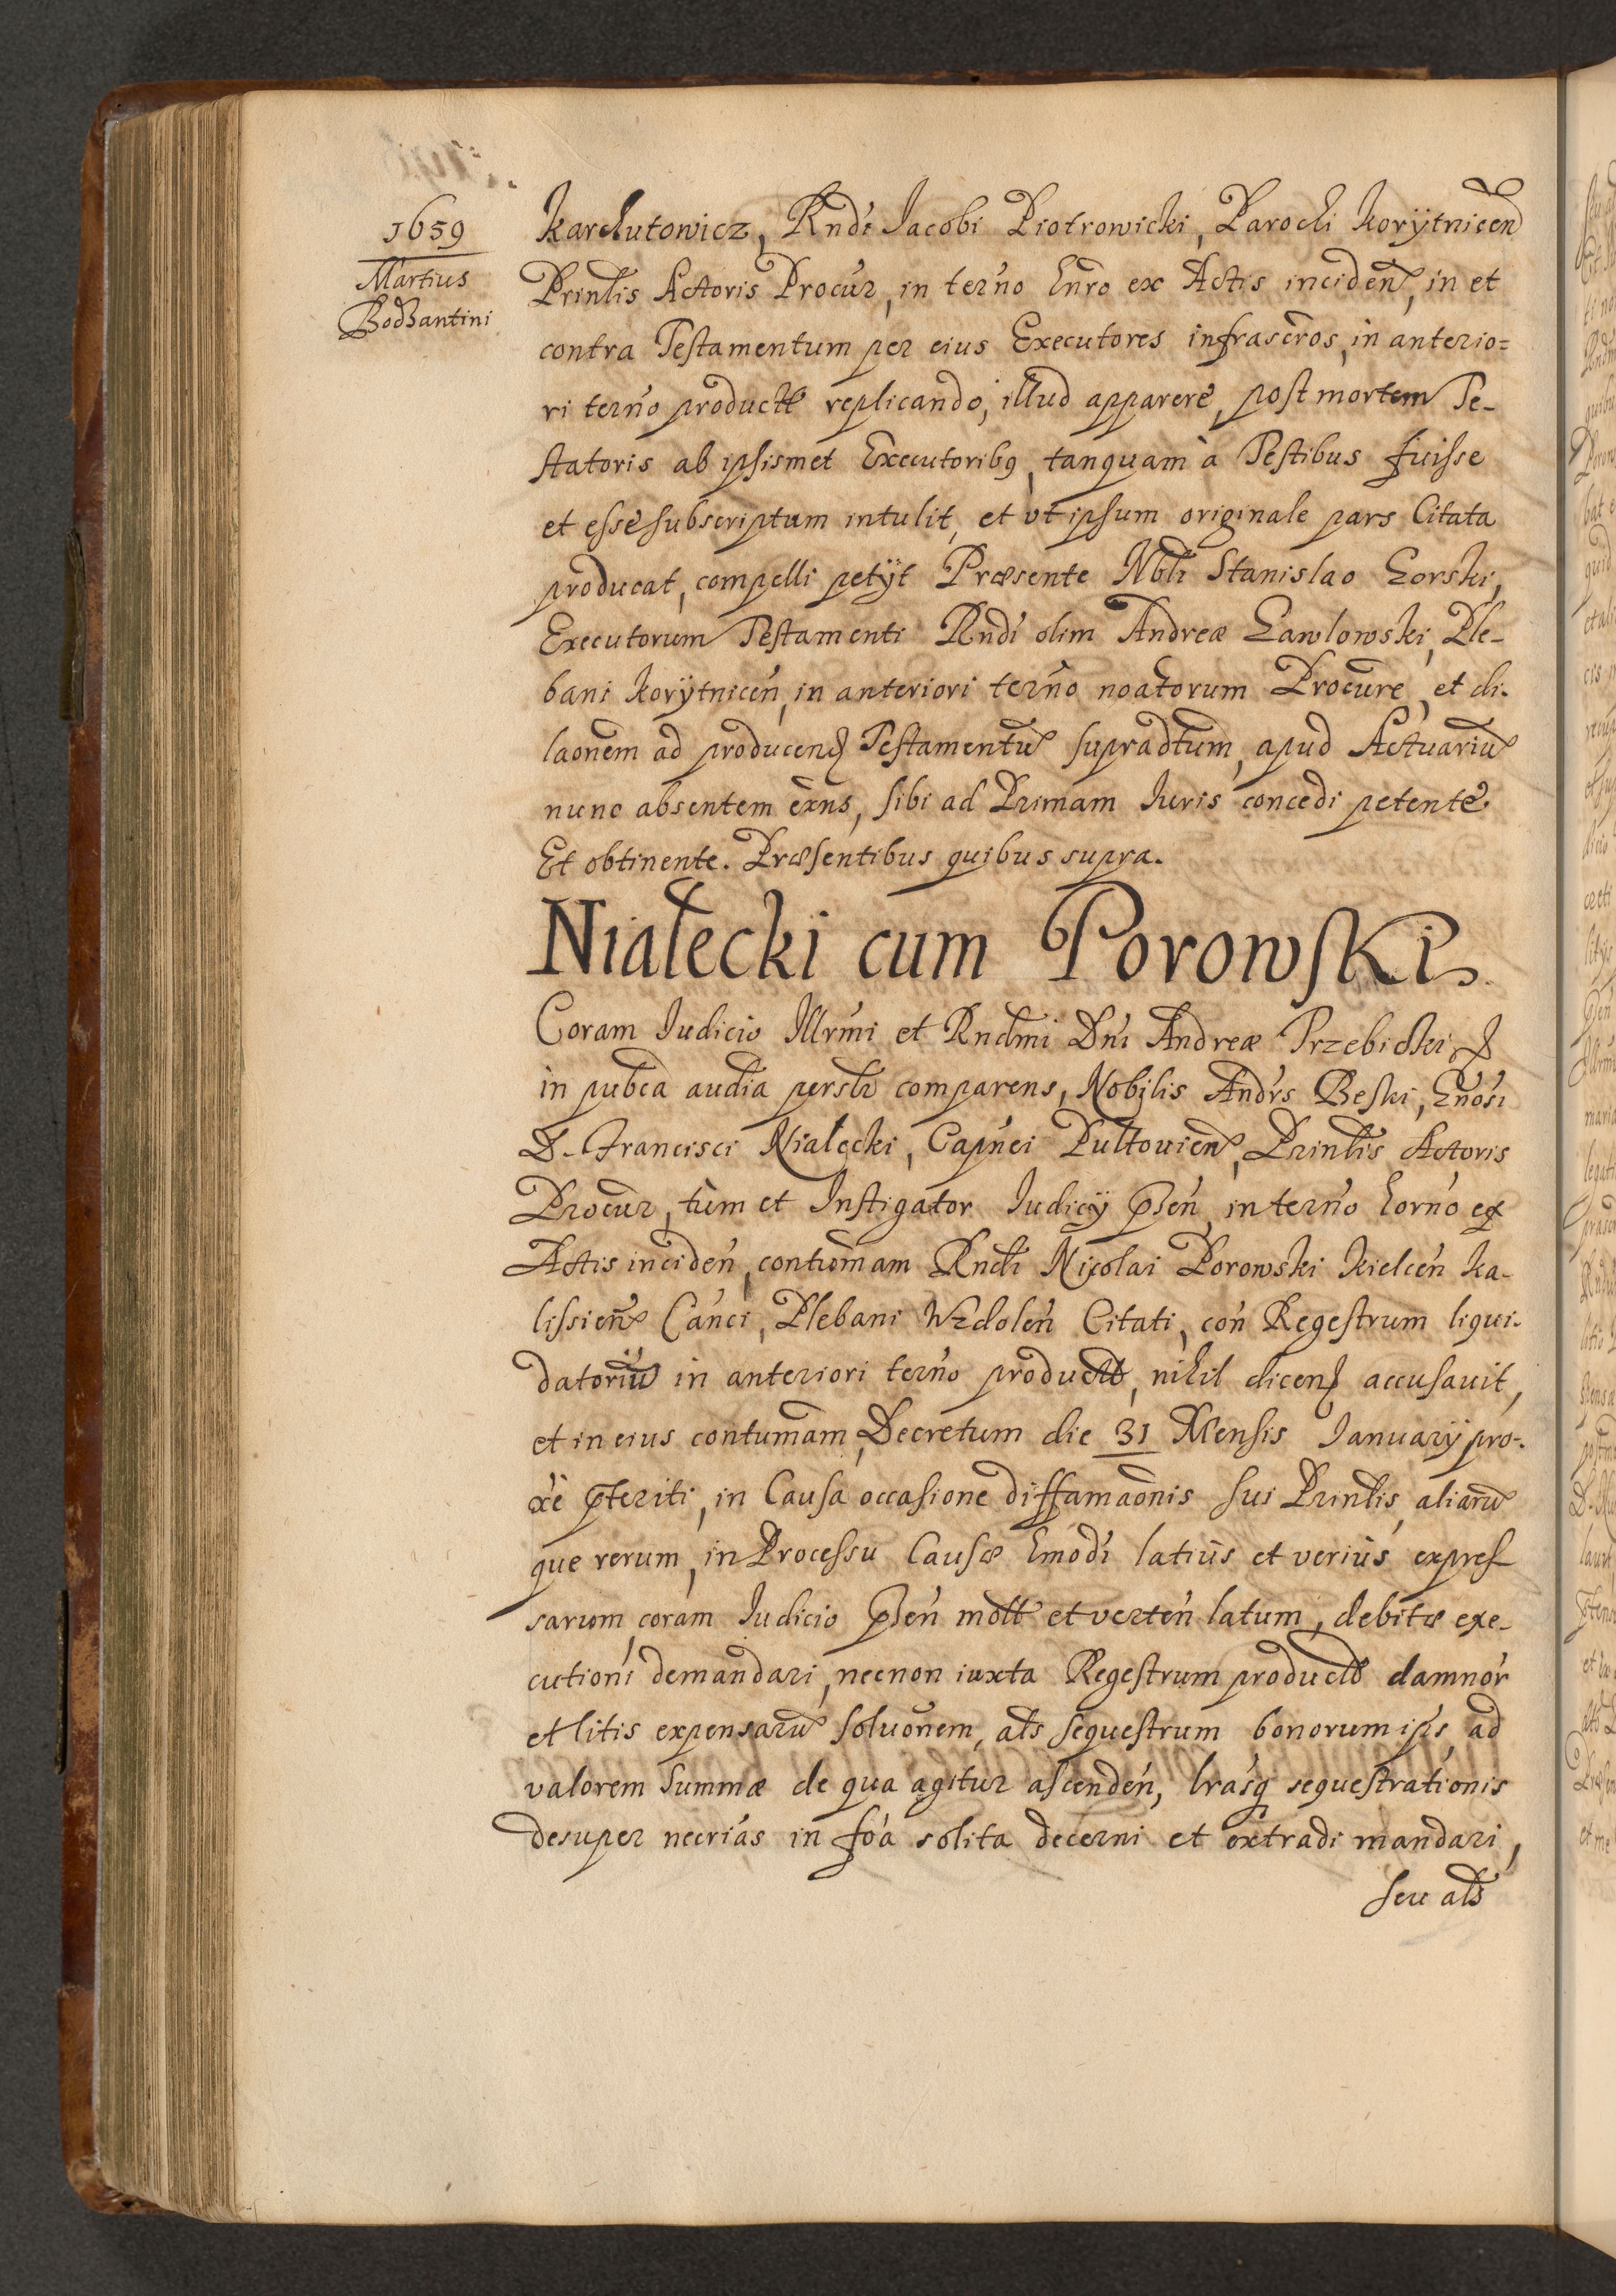 1659
Martius
Bodzantini
Karchutowicz, Rndi Iacobi Piotrowicki, Parochi Korÿtnicen
Prinlis Actoris Procur, in terno hnro ex Actis inciden, in et
contra Testamentum per eius Executores infrascros, in anterio=
ri terno productt replicando, illud apparere, post mortem Te-
statoris ab ipsismet Executoribq, tanquam à Testibus fuisse
et esse subscriptum intulit, et vt ipsum originale pars Citata
producat, compelli petÿt Præsente Nbli Stanislao Gorski,
Executorum Testamenti Rndi olim Andreæ Gawlowski, Ple-
bani Korÿtnicen, in anteriori terno noatorum Procure, et di-
laonem ad producend Testamentu supradtum, apud Actuariu
nunc absentem exns, sibi ad Primam Iuris concedi petente.
Et obtinente. Præsentibus quibus supra.
Nialecki cum Porowski
Coram Iudicio Illrmi et Rndmi Dni Andreæ Trzebicki &
in pubca audia perslr comparens, Nobilis Andrs Beski, Gnosi
D. Francisci Nialęcki, Capnei Pultouien, Prinlis Actoris
Procur, tum et Instigator Iudicÿ pñsen, in terno horno ex
Actis inciden, contumam Rndi Nicolai Porowski Kielcen Ka-
lissien Canci, Plebani Wzdolen Citati, con Regestrum liqui-
datoriu in anteriori terno productt, nihil dicend accusauit,
et in eius contumam, Decretum die 31 Mensis Ianuarÿ pro-
xè pteriti, in Causa occasione diffamaonis sui Prinlis, aliaru
que rerum, in Processu Causæ hmodi latiùs et veriùs expres
sarum, coram Iudicio pñsen mott et verten latum, debitæ exe-
cutioni demandari, necnon iuxta Regestrum productt damnor
et litis expensaru soluonem, als sequestrum bonorum ips, ad
valorem Summæ de qua agitur ascenden, lrasq sequestrationis
desuper necrias in foa solita decerni et extradi mandari,
seu als